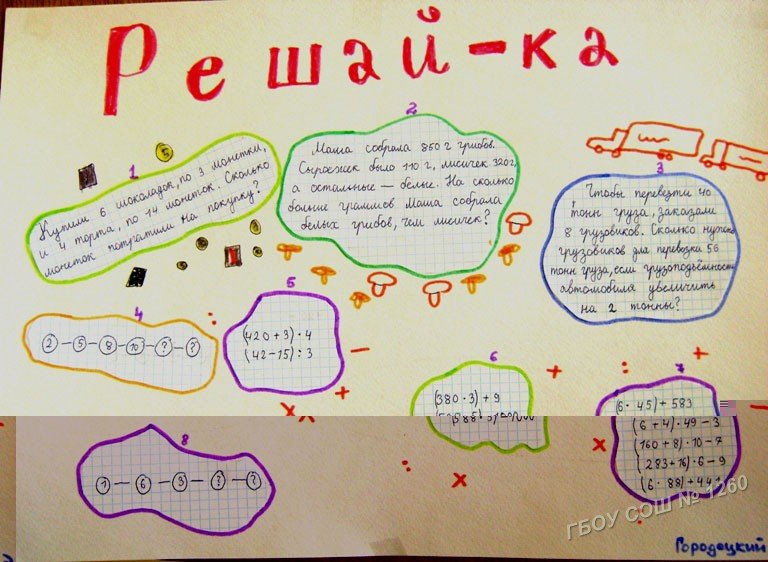 Решай-ка
1
Купили 6 шоколадок, по 3 монетки,
и 4 торта, по 14 монеток. Сколько
монеток потратили на покупку?
5
2
Маша собрала 850 г грибов.
Сыроежек было 110 г, лисичек 320 г,
а остальные — белые. На сколько
больше граммов Маша собрала
белых грибов, чем лисичек?
3
Чтобы перевезти 40
тонн груза, заказали
8 грузовиков. Сколько нужно
грузовиков для перевозки 56
тонн груза, если грузоподъёмность
автомобиля увеличить
на 2 тонны?
4
2 — 5 — 8 — 10 — ? — ?
5
(420 + 3) · 4
(42 - 15) : 3
6
(380 · 3) + 9
7
(6 · 45) + 583
(6 + 4) · 49 - 3
(160 + 8) · 10 - 7
(283 + 16) · 6 - 9
(6 · 88) + 441
8
1 — 6 — 3 — ? — ?
ГБОУ СОШ № 1260
Городецкий